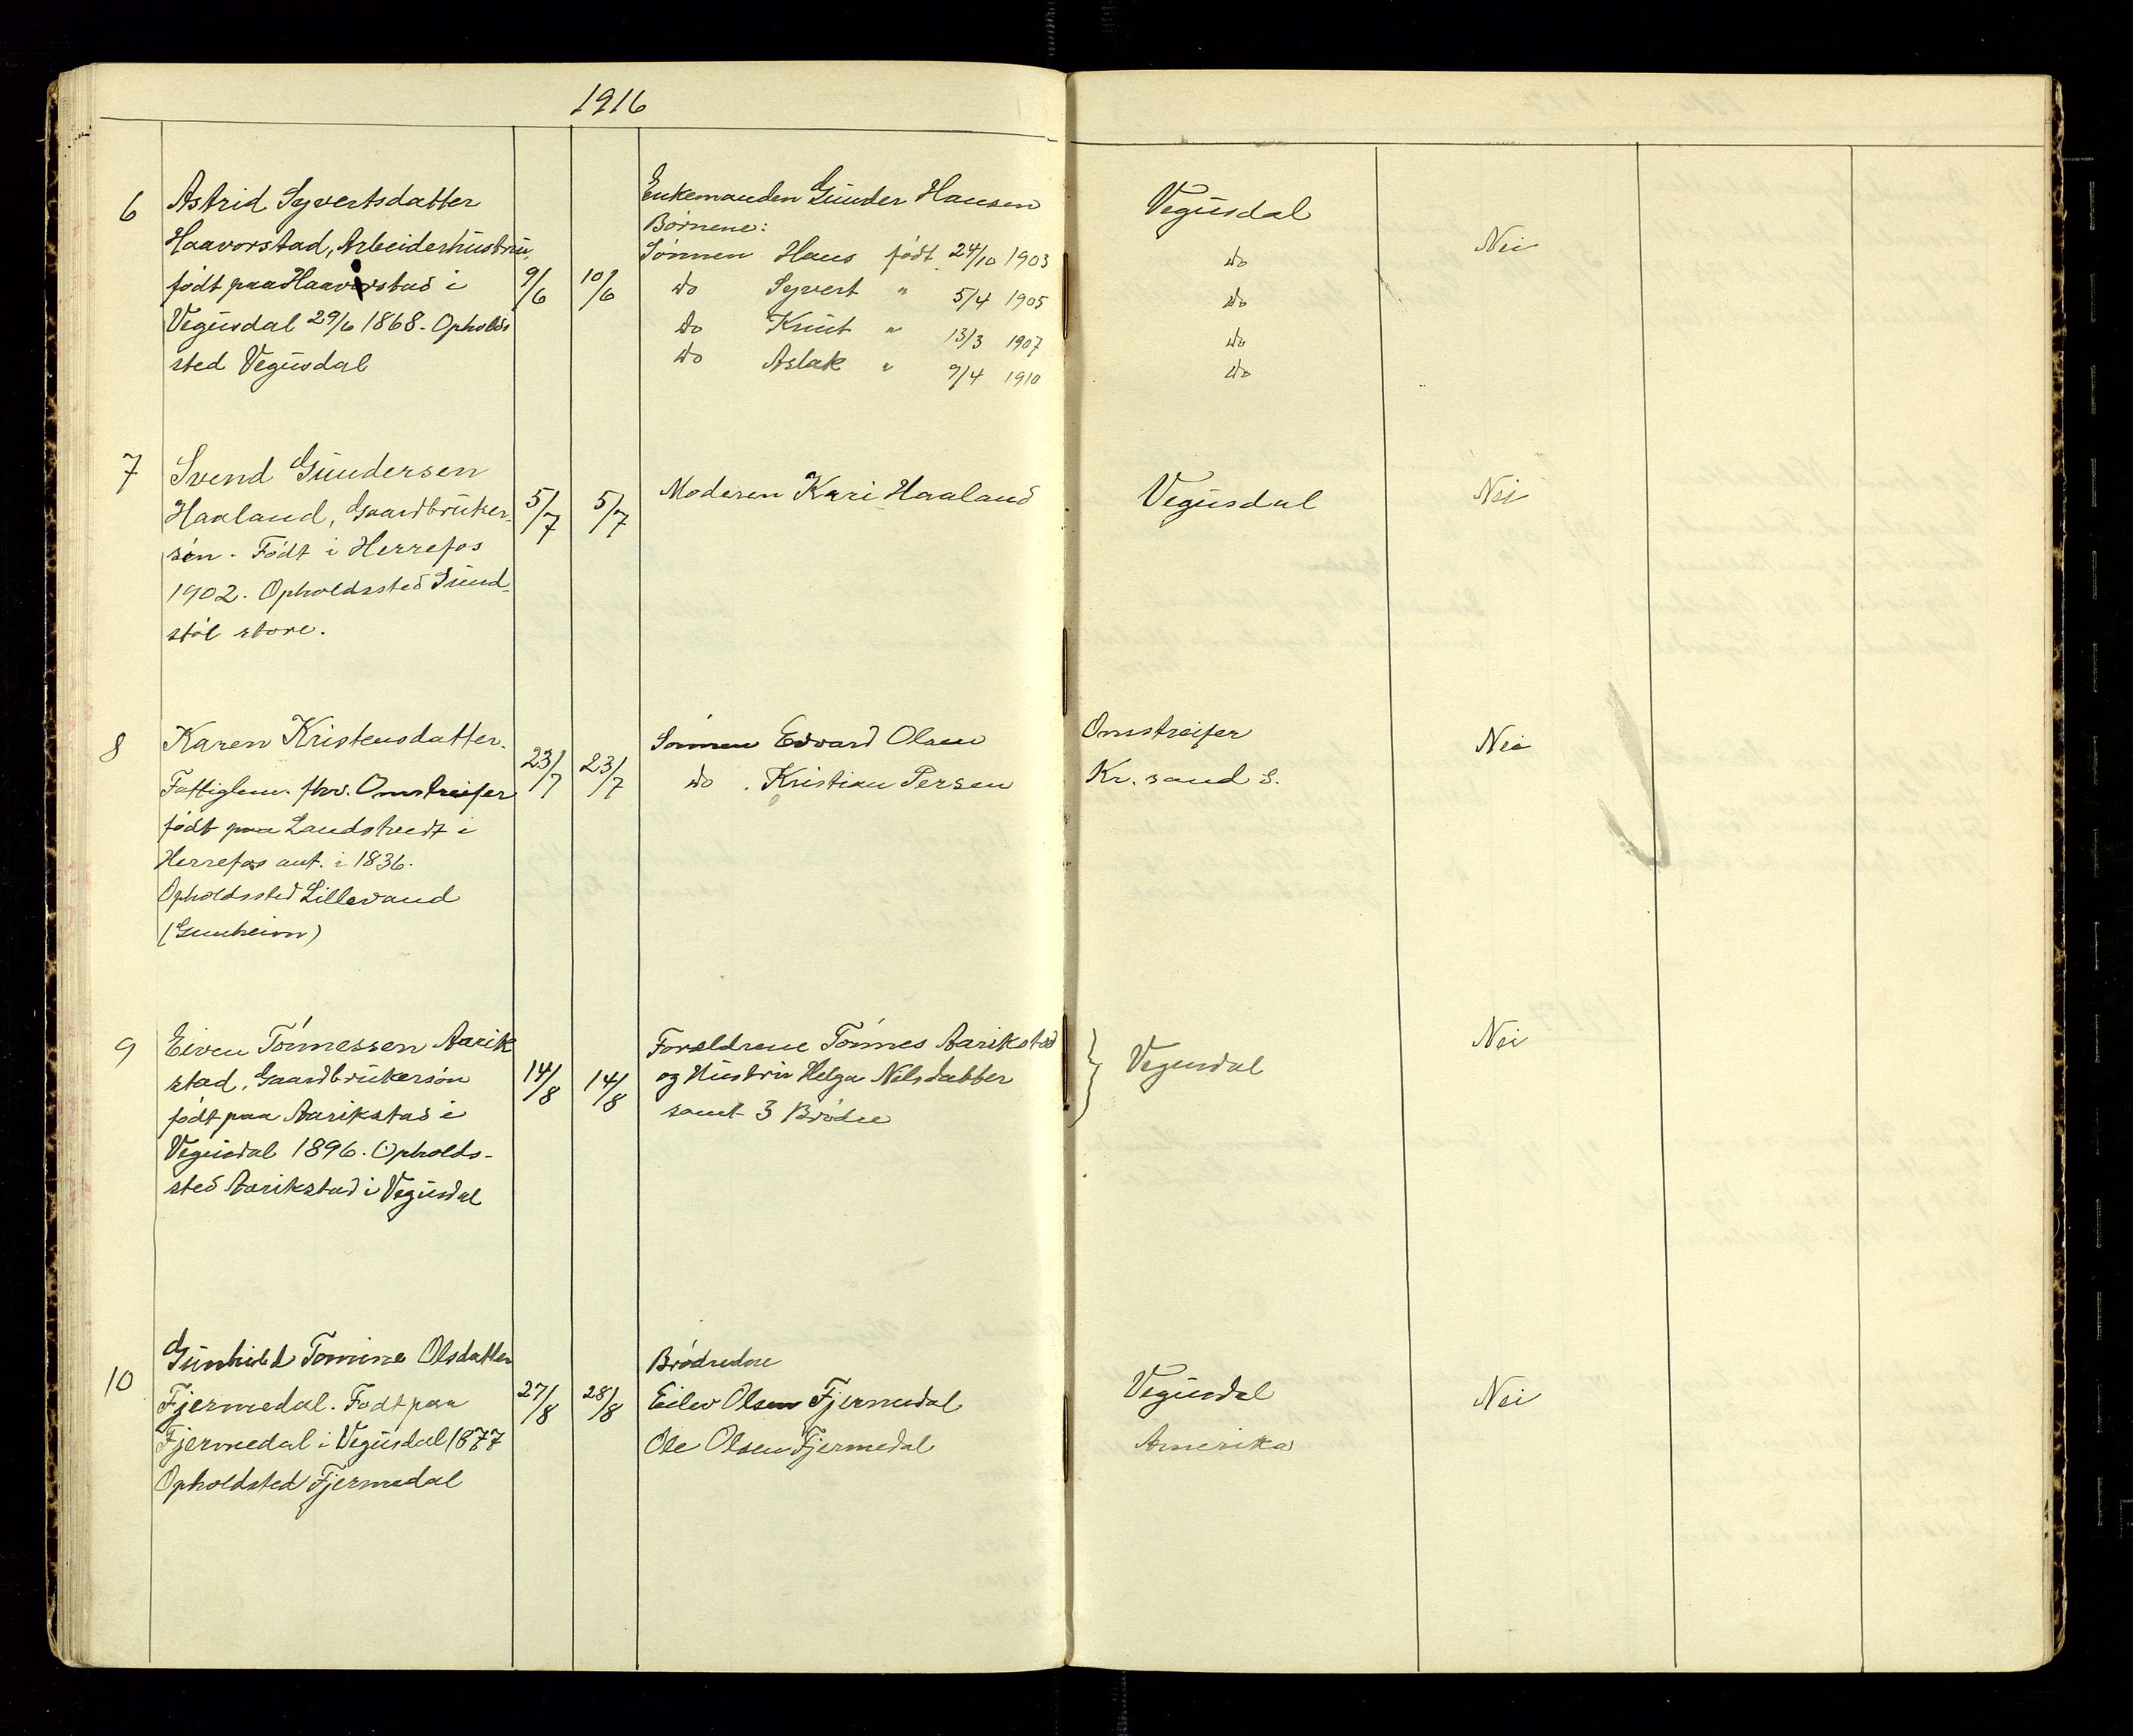 1916
6
Astrid Syvertsdatter
Haavorstad, Arbeiderhustru,
født paa Haavorstad i
Vegusdal 29/6 1868. Opholds
sted Vegusdal
9/6
10/6
Enkemanden Gunder Hansen
Børnene:
Sønnen Hans født 24/10 1903
do Syvert " 5/4 1905
do Knut " 13/3 1907
do Aslak " 9/4 1910
Vegusdal
do
do
do
do
Nei
7
Svend Gundersen
Haaland, Gaardbruker-
søn. Født i Herrefos
1902. Opholdssted Sund-
støl store.
5/7
5/7
Moderen Kari Haaland
Vegusdal
Nei
8
Karen Kristensdatter.
Fattiglem. fhv. Omstreifer
født paa Landstvedt i
Herrefos ant. i 1836.
Opholdssted Lillevand
(Gunheim)
23/7
23/7
Sønnen Edvard Olsen
do. Kristian Persen
Omstreifer
Kr.sand S.
Nei
9
Eiven Tønnessen Aarik
stad, Gaardbrukersøn
født paa Aarikstad i
Vegusdal 1896. Opholds-
sted Aarikstad i Vegusdal
14/8
14/8
Forældrene Tønnes Aarikstad
og Hustru Helga Nilsdatter
samt 3 Brødre
Vegusdal
Nei
10
Gunhild Tomine Olsdatter
Fjermedal. Født paa
Fjermedal i Vegusdal 1877
Opholdsted Fjermedal
27/8
28/8
Brødrene
Eilev Olsen Fjermedal
Ole Olsen Fjermedal
Vegusdal
Amerika
Nei